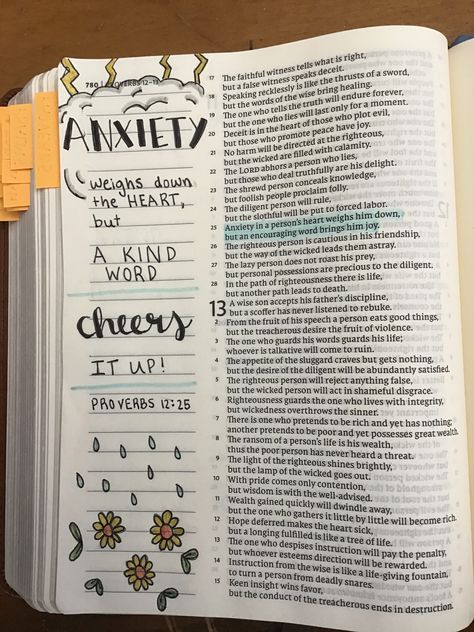 780 | PROVERBS 12–13
ANXIETY
weighs down
the HEART,
but
A KIND
WORD
cheers
IT UP!
PROVERBS 12:25
17 The faithful witness tells what is right,
but a false witness speaks deceit.
18 Speaking recklessly is like the thrusts of a sword,
but the words of the wise bring healing.
19 The one who tells the truth will endure forever,
but the one who lies will last only for a moment.
20 Deceit is in the heart of those who plot evil,
but those who promote peace have joy.
21 No harm will be directed at the righteous,
but the wicked are filled with calamity.
22 The LORD abhors a person who lies,
but those who deal truthfully are his delight.
23 The shrewd person conceals knowledge,
but foolish people proclaim folly.
24 The diligent person will rule,
but the slothful will be put to forced labor.
25 Anxiety in a person's heart weighs him down,
but an encouraging word brings him joy.
26 The righteous person is cautious in his friendship,
but the way of the wicked leads them astray.
27 The lazy person does not roast his prey,
but personal possessions are precious to the diligent.
28 In the path of righteousness there is life,
but another path leads to death.
13 A wise son accepts his father's discipline,
but a scoffer has never listened to rebuke.
2 From the fruit of his speech a person eats good things,
but the treacherous desire the fruit of violence.
3 The one who guards his words guards his life;
whoever is talkative will come to ruin.
4 The appetite of the sluggard craves but gets nothing,
but the desire of the diligent will be abundantly satisfied.
5 The righteous person will reject anything false,
but the wicked person will act in shameful disgrace.
6 Righteousness guards the one who lives with integrity,
but wickedness overthrows the sinner.
7 There is one who pretends to be rich and yet has nothing;
another pretends to be poor and yet possesses great wealth.
8 The ransom of a person's life is his wealth,
thus the poor person has never heard a threat.
9 The light of the righteous shines brightly,
but the lamp of the wicked goes out.
10 With pride comes only contention,
but wisdom is with the well-advised.
11 Wealth gained quickly will dwindle away,
but the one who gathers it little by little will become rich.
12 Hope deferred makes the heart sick,
but a longing fulfilled is like a tree of life.
13 The one who despises instruction will pay the penalty,
but whoever esteems direction will be rewarded.
14 Instruction from the wise is like a life-giving fountain,
to turn a person from deadly snares.
15 Keen insight wins favor,
but the conduct of the treacherous ends in destruction.